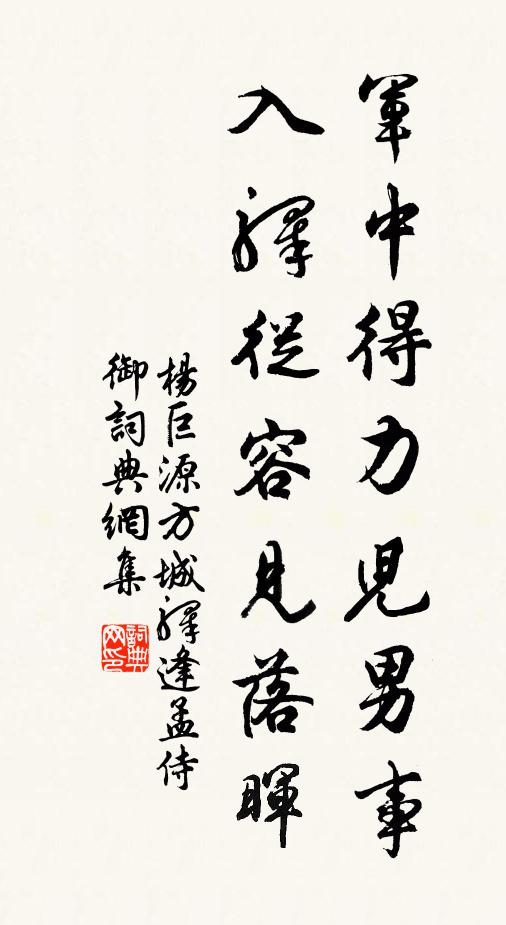 軍中得力兒男事
入驛從容見落暉
楊巨源方城驛逢孟侍
御詞典網集
詞典
网印